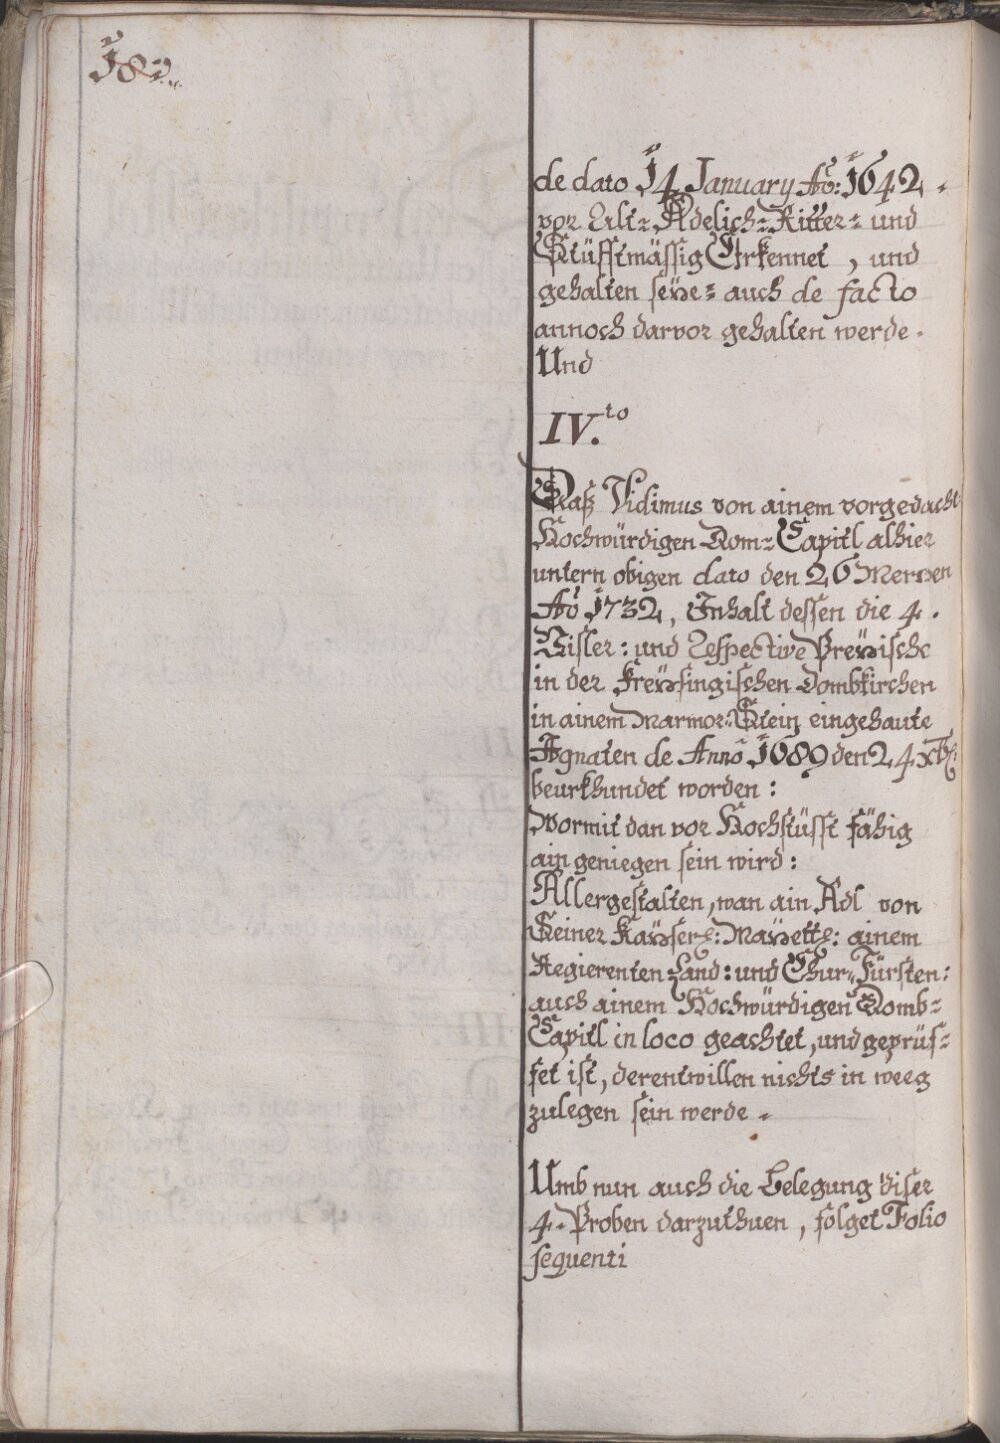 182.
de dato 14 January Aõ: 1642.
vor Alt= Adelich= Ritter= und
Stüfftmässig Erkennet, und
gehalten seÿe= auch de facto
annoch darvor gehalten werde.
Und
IV.to
Daß Vidimus von ainem vorgedacht
Hochwürdigen Dom= Capitl alhier
untern obigen dato den 26 Merzen
Aõ 1732, Inhalt dessen die 4.
und Respective Preÿische
in der Freÿsingischen Dombkirchen
in ainem Marmor= Stein eingehaute
Agnaten de Anno 1689 den 24 xbr:
beurkhundet worden:
Wormit dan vor Hochstüfft fähig
ain geniegen sein wird:
Allergestalten, wan ain Adl von
Seiner Kaÿserl: Maÿett: ainem
Regierenten Land: und Chur= Fürsten:
auch ainem Hochwürdigen Domb=
Capitl in loco geachtet, und geprüf=
fet ist, derentwillen nichts in weeg
zulegen sein werde.
Umb nun auch die Belegung diser
4. Proben darzuthuen, folget Folio
sequenti